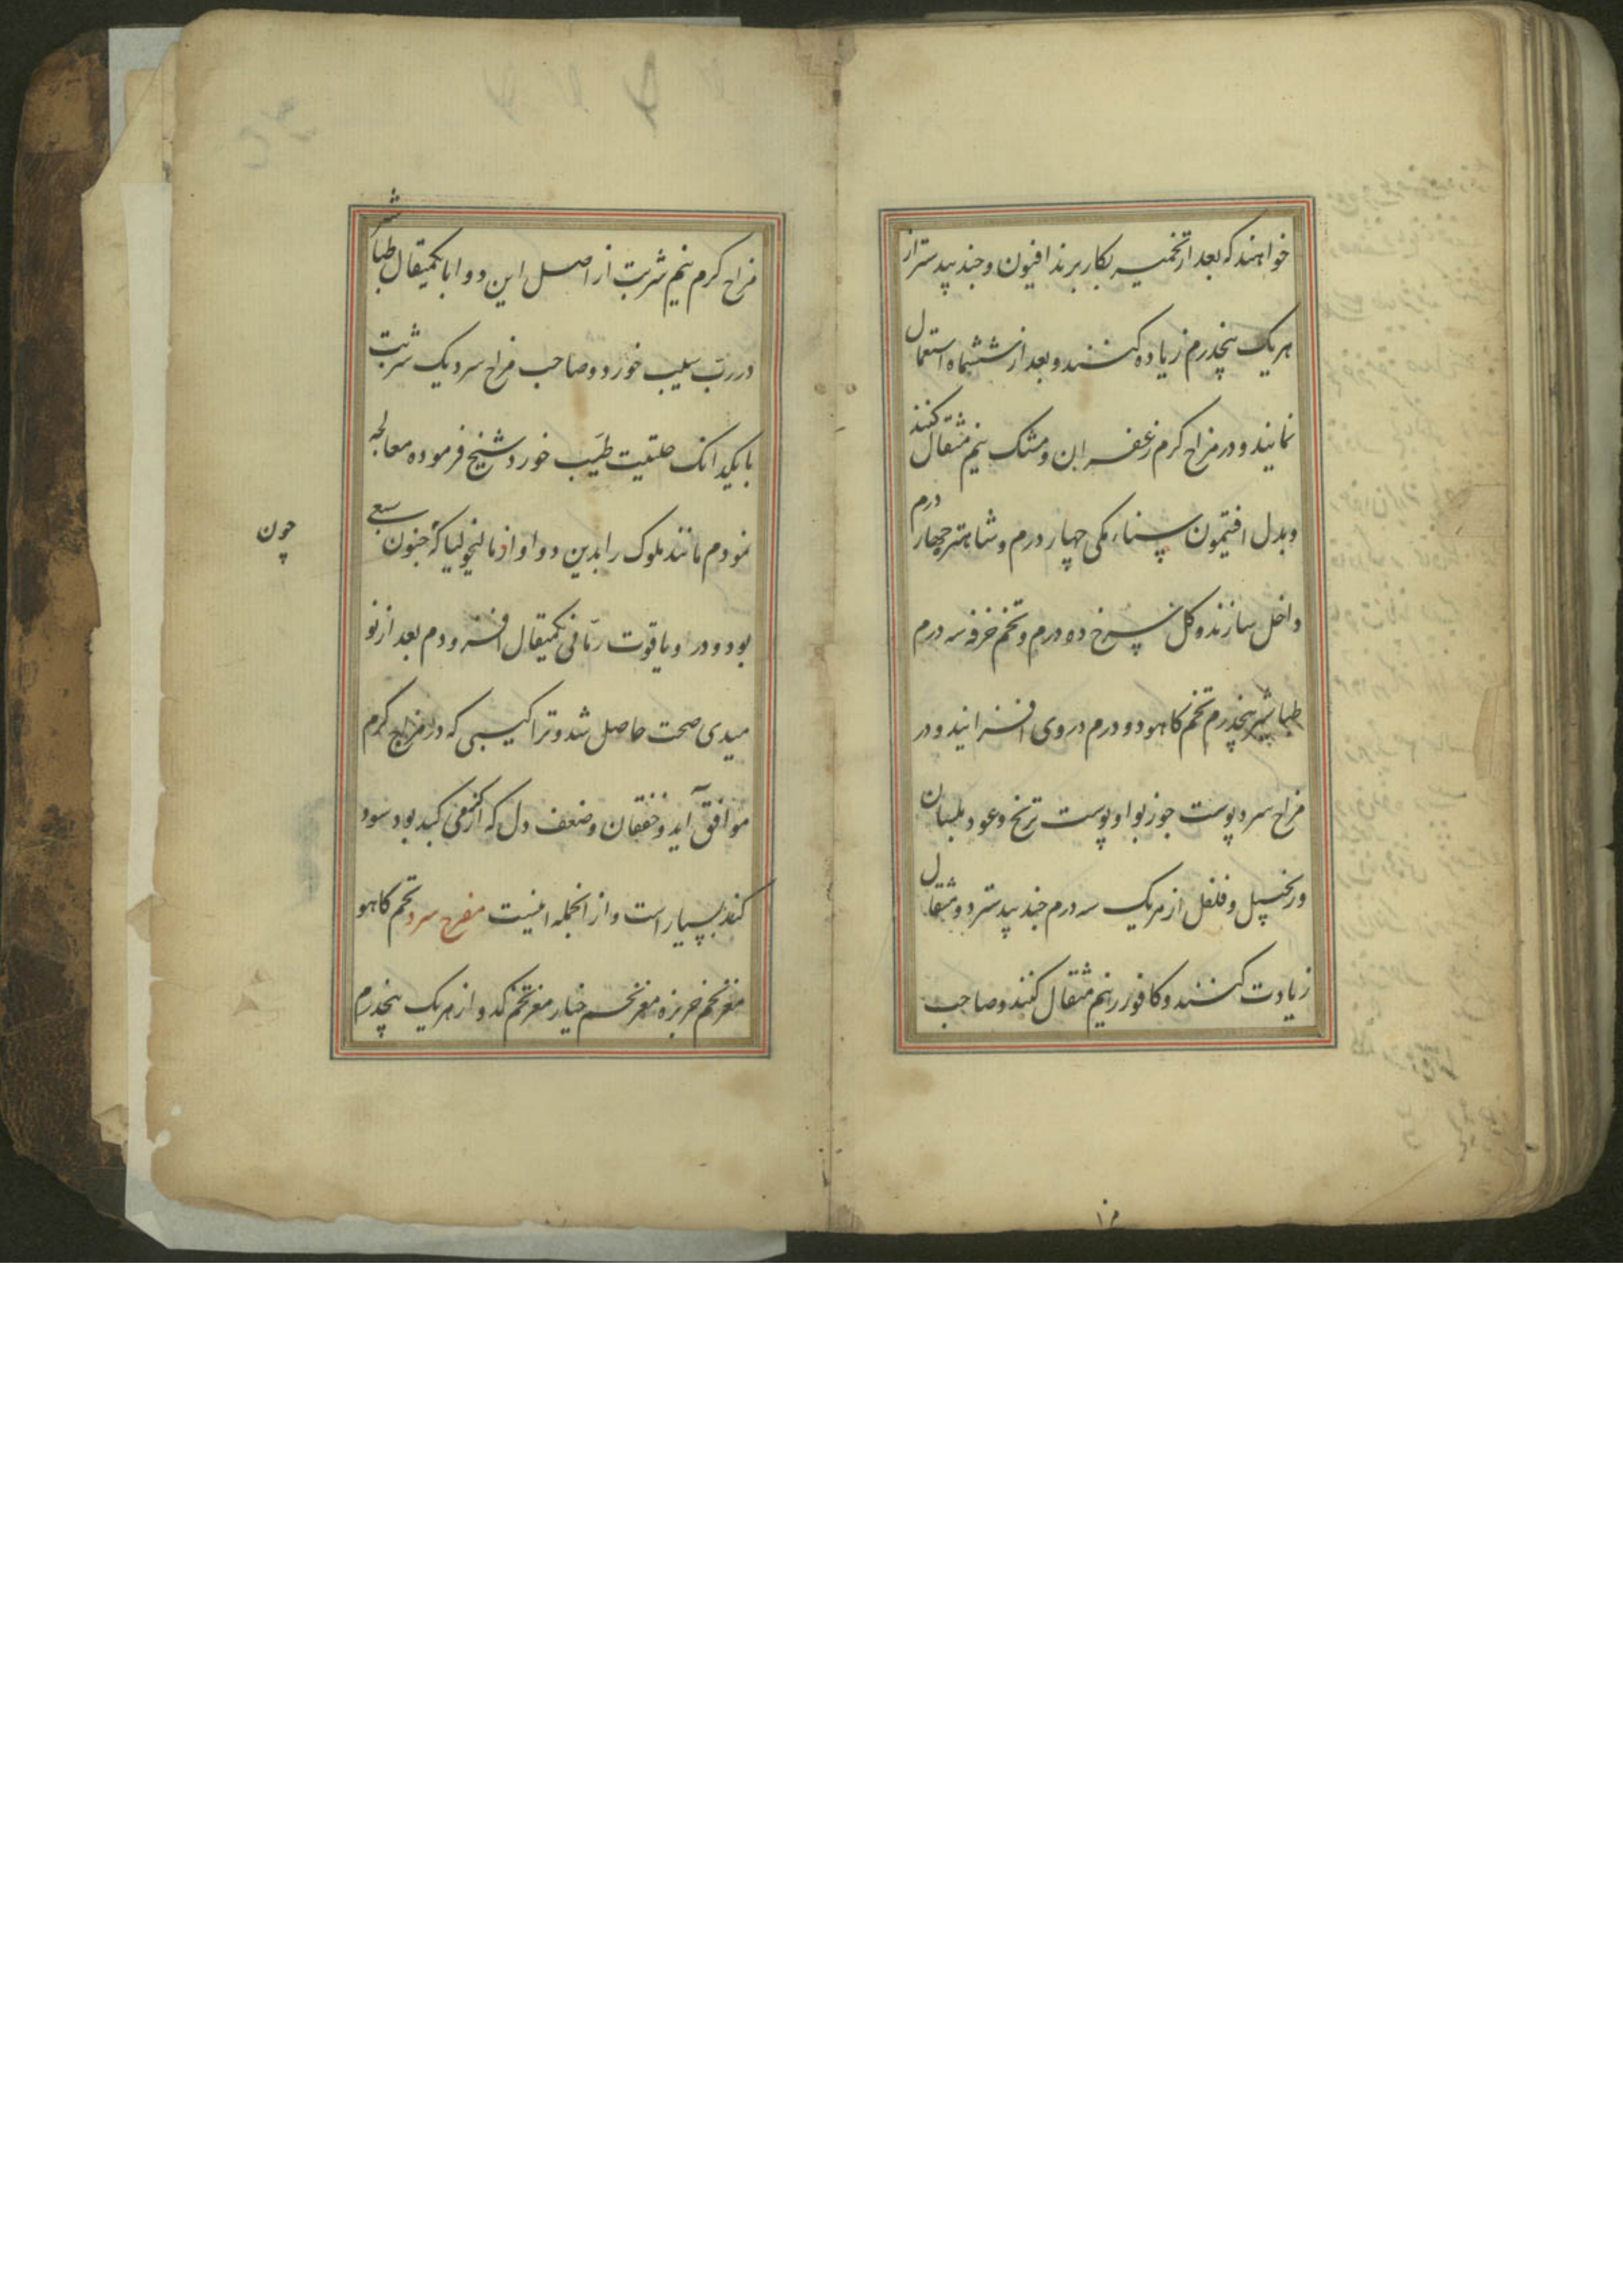 خواهند که بعد از تخمیر بکار برند افیون و جند بیدستر از
هر یک پنجدرم زیاده کنند و بعد از ششماه استعمال
نمایند و در مزاج کرم زعفران و مشک نیم مثقال کنند
و بدل افتیمون سناء مکی چهار درم و شاهتره چهار درم
داخل سازند و کل سرخ ده درم و تخم خرفه سه درم
طباشیر پنجدرم تخم کاهو دو درم در وی افزایند و در
مزاج سرد پوست جوزبوا و پوست ترنج و عود بلسان
و زنجبیل و فلفل از هر یک سه درم جند بیدستر دو مثقال
زیادت کنند و کافور نیم مثقال کنند و صاحب
مزاج کرم نیم شربت از اصل این دوا با یکمثقال طباشیر
در رب سیب خورد و صاحب مزاج سرد یک شربت
با یکدانک حلتیت طیب خورد شیخ فرموده معالجه
نمودم مانند ملوک را بدین دوا و از مالیخولیا که جنون سبعی
چون
بود و در او یاقوت رمانی یکمثقال افزودم بعد از نو
میدی صحت حاصل شد و تراکیبی که در مزاج کرم
موافق آید و خفقان و ضعف دل که از کرمی کبد بود سود
کند بسیار است و از انجمله اینست مفرح سرد تخم کاهو
مغز تخم خربزه مغز تخم خیار مغز تخم کدو از هر یک پنجدرم